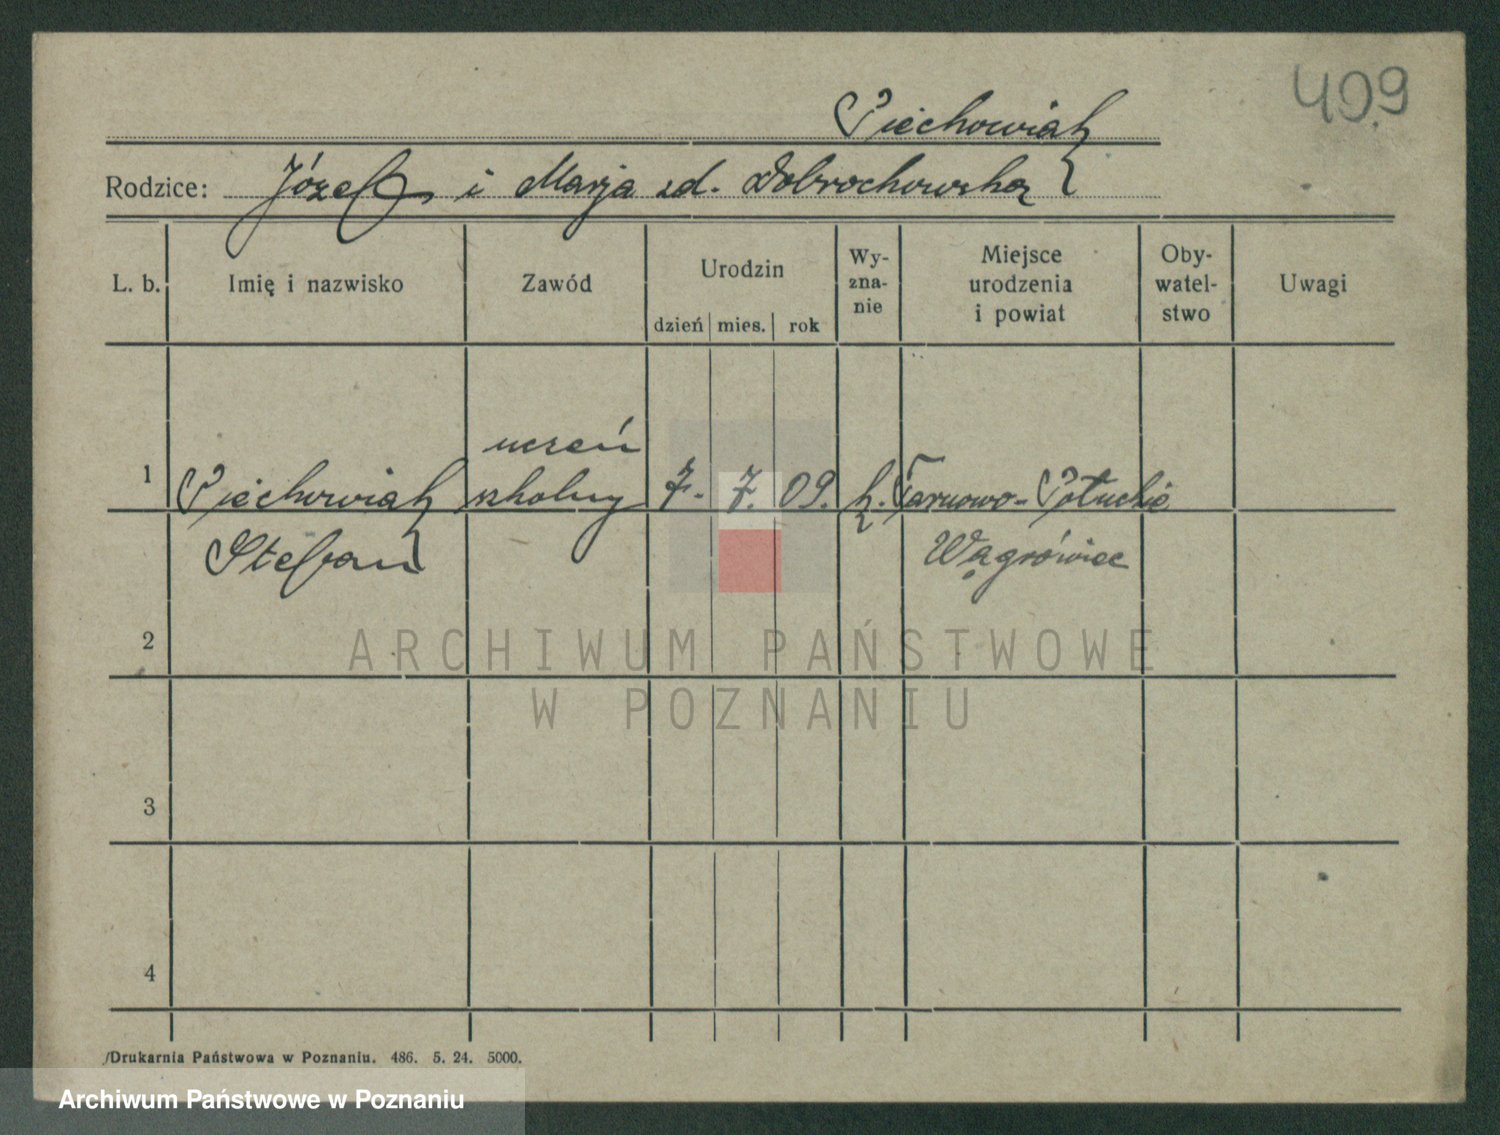 409
Piechowiak
Rodzice: Józef i Marja zd. Dobrochowska
L. b. Imię i nazwisko Zawód Urodzin dzień mies. rok Wy-zna-nie Miejsce urodzenia i powiat Oby-watel-stwo Uwagi
uczeń
1 Piechowiak szkolny 7. 7. 09. k. Tarnowo-Pałuckie
Stefan Wągrówiec
2
ARCHIWUM PAŃSTWOWE
W POZNANIU
3
4
Drukarnia Państwowa w Poznaniu. 486. 5. 24. 5000.
Archiwum Państwowe w Poznaniu